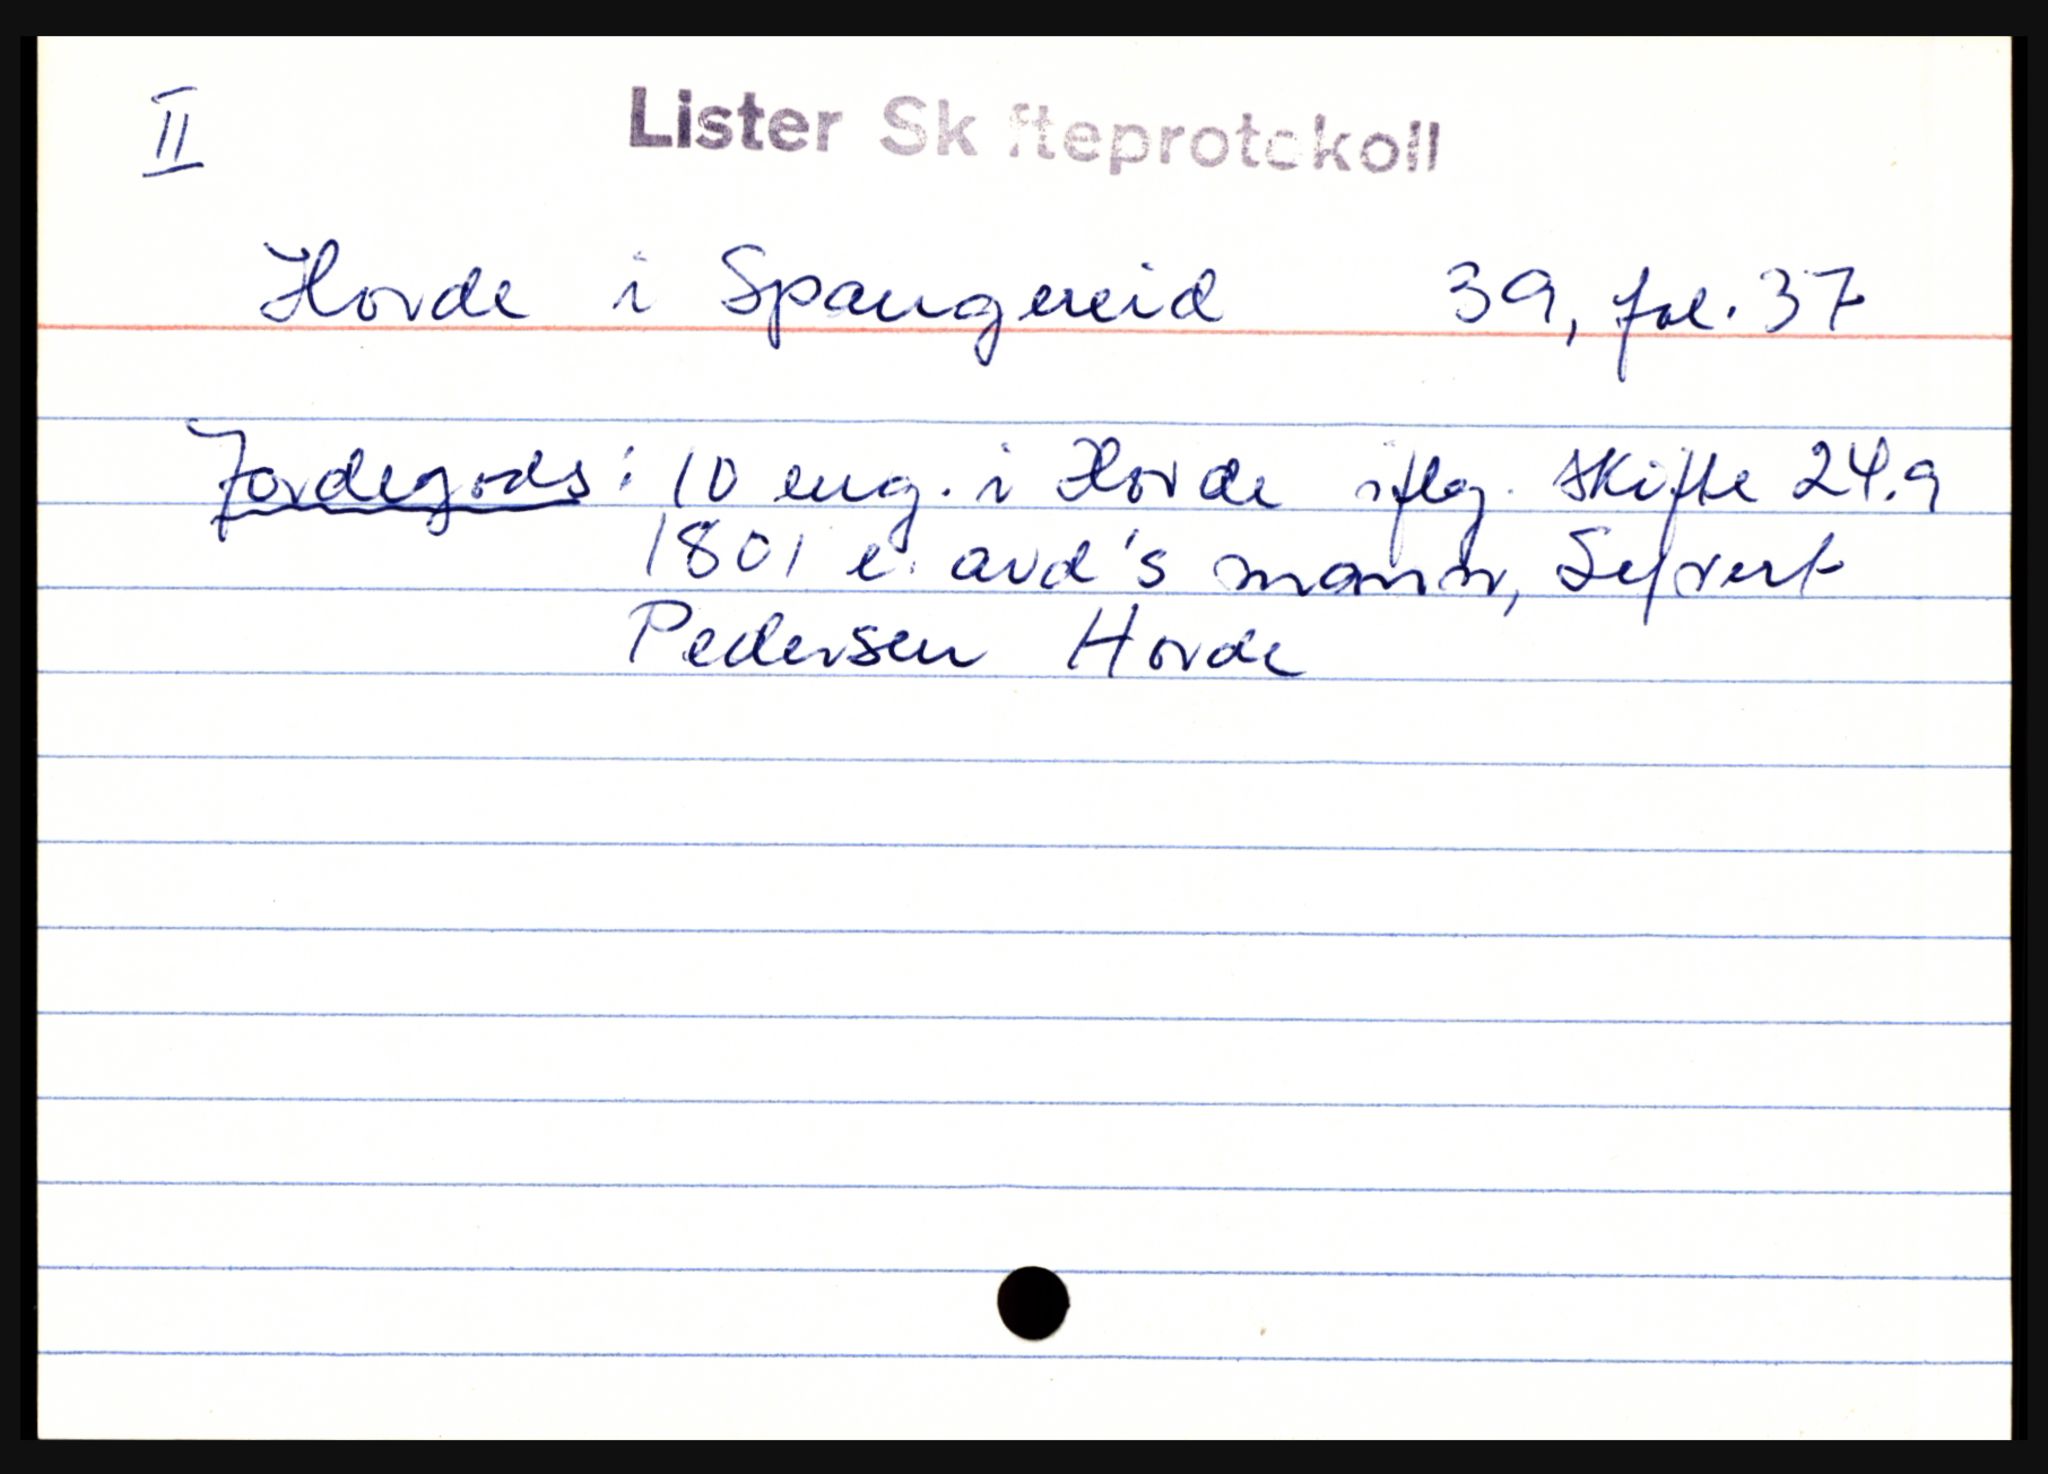 II
Lister Skifteprotokoll
Horde i Spangereid 39, fol. 37
Jordegods: 10 eng. i Horde iflg. skifte 24.9
1801 e. avd's mann, Sefvert
Pedersen Horde